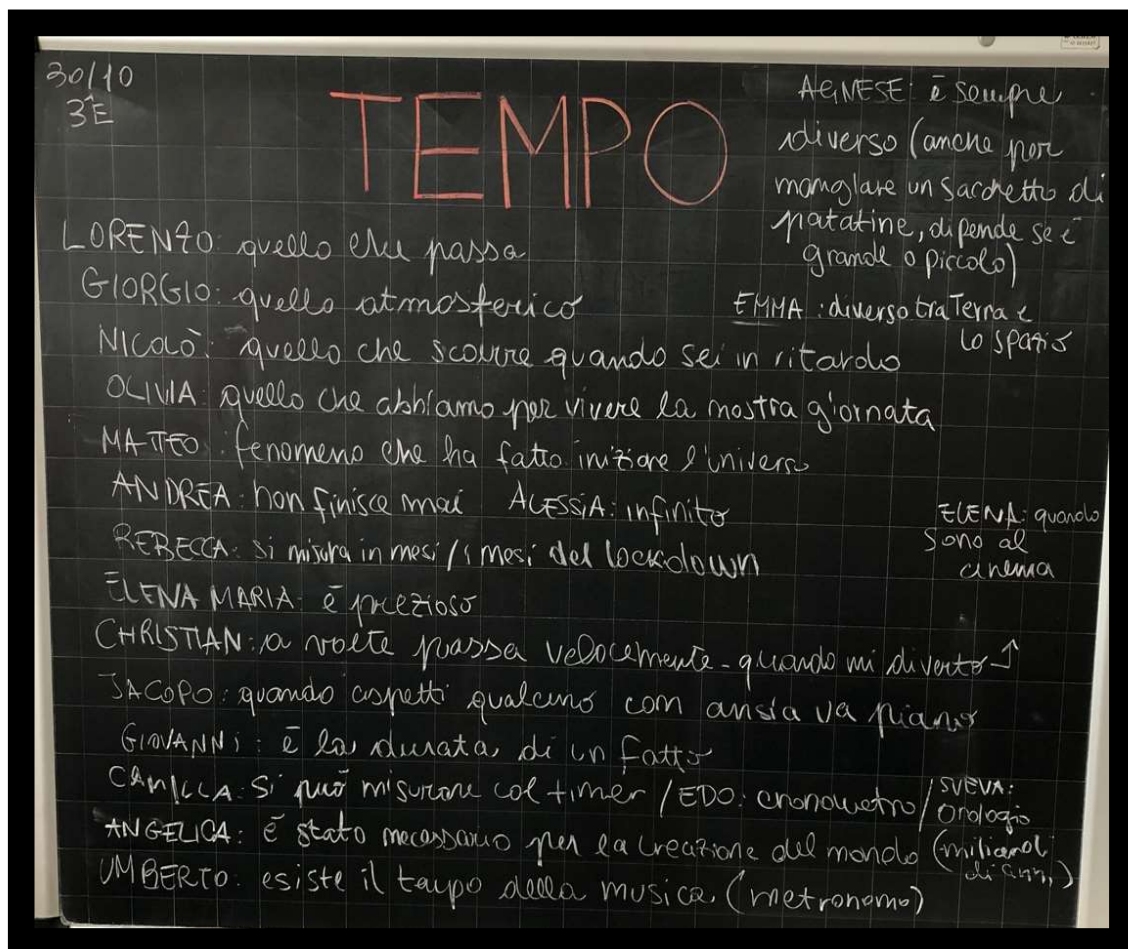 30/10
3^E
TEMPO
AGNESE: è sempre
diverso (anche per
mangiare un sacchetto di
patatine, dipende se è
grande o piccolo)
EMMA: diverso tra Terra e
lo spazio
LORENZO: quello che passa
GIORGIO: quello atmosferico
NICOLÒ: quello che scorre quando sei in ritardo
OLIVIA: quello che abbiamo per vivere la nostra giornata
MATTEO: fenomeno che ha fatto iniziare l'universo
ANDREA: non finisce mai ALESSIA: infinito
REBECCA: si misura in mesi / i mesi del lockdown
ELENA: quando
sono al
cinema
ELENA MARIA: è prezioso
CHRISTIAN: a volte passa velocemente - quando mi diverto
JACOPO: quando aspetti qualcuno con ansia va piano
GIOVANNI: è la durata di un fatto
CAMILLA: si può misurare col timer / EDO: cronometro / SVEVA:
Orologio
ANGELICA: è stato necessario per la creazione del mondo (miliardi
di anni)
UMBERTO: esiste il tempo della musica (metronomo)